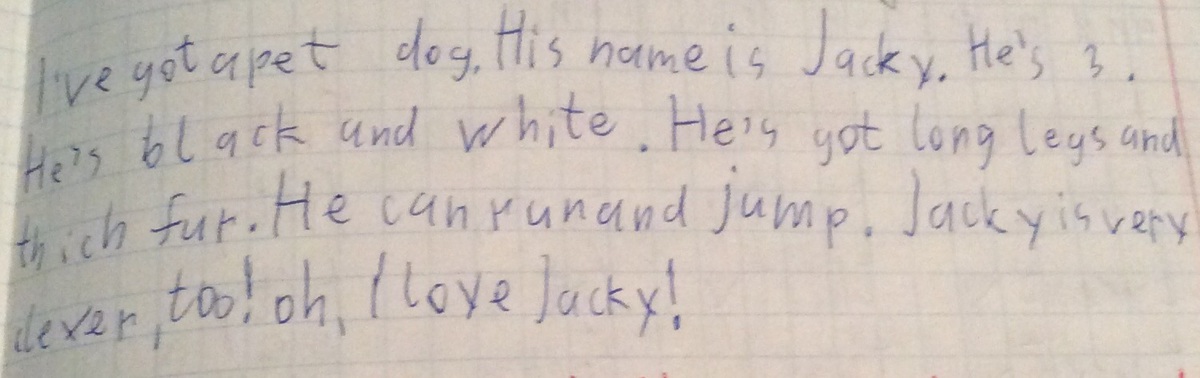 I've got a pet dog. His name is Jacky. He's 3.
He's black and white. He's got long legs and
thich fur. He can run and jump. Jacky is very
clever, too! oh, I love Jacky!